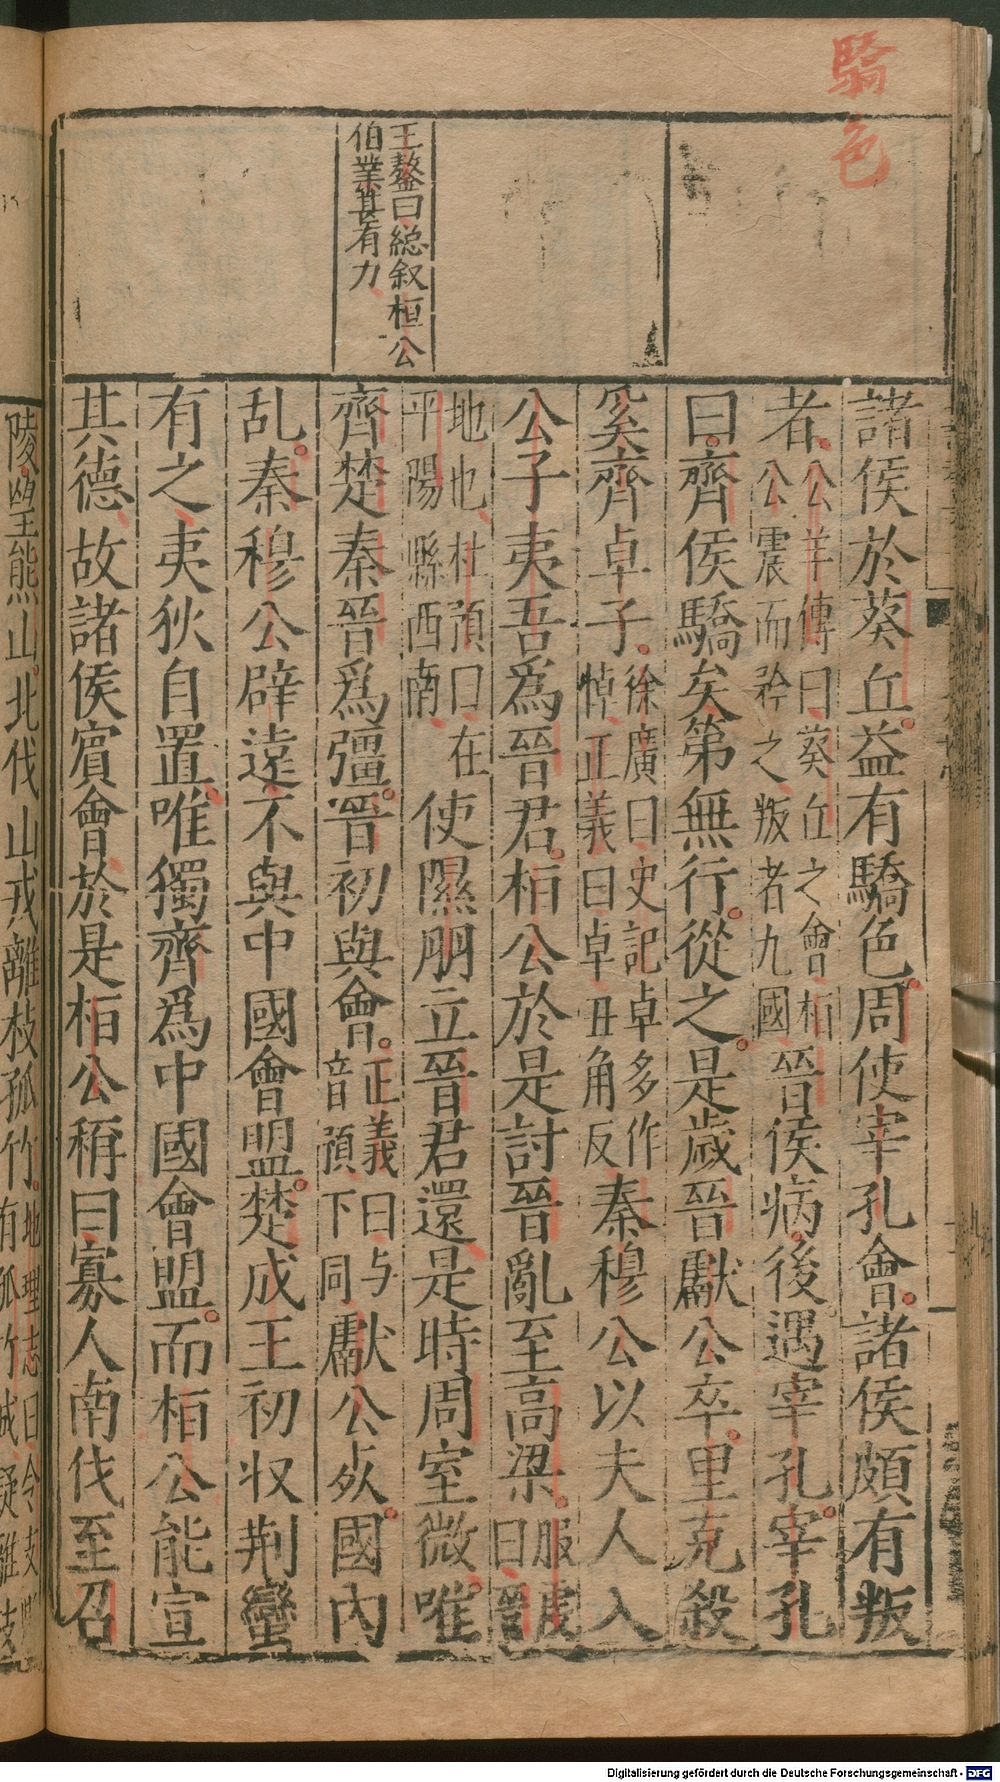 驕色
王鏊曰総叙桓公
伯業甚有力
諸侯於葵丘益有驕色周使宰孔會諸侯頗有叛
者公羊傳曰葵丘之會桓
公震而矜之叛者九國晉侯病後遇宰孔宰孔
曰齊侯驕矣第無行從之是歲晉獻公卒里克殺
奚齊卓子徐廣曰史記卓多作
悼正義曰卓丑角反秦穆公以夫人入
公子夷吾爲晉君桓公於是討晉亂至高梁服虔
曰晉
地也杜預曰在
平陽縣西南使隰朋立晉君還是時周室微唯
齊楚秦晉爲彊晉初與會正義曰与
音預下同獻公死國内
乱秦穆公辟遠不與中國會盟楚成王初収荆蠻
有之夷狄自置唯獨齊爲中國會盟而桓公能宣
其德故諸侯賓會於是桓公稱曰寡人南伐至召
陵望熊山北伐山戎離枝孤竹地理志曰令支
有孤竹城疑離枝
Digitalisierung gefördert durch die Deutsche Forschungsgemeinschaft - DFG